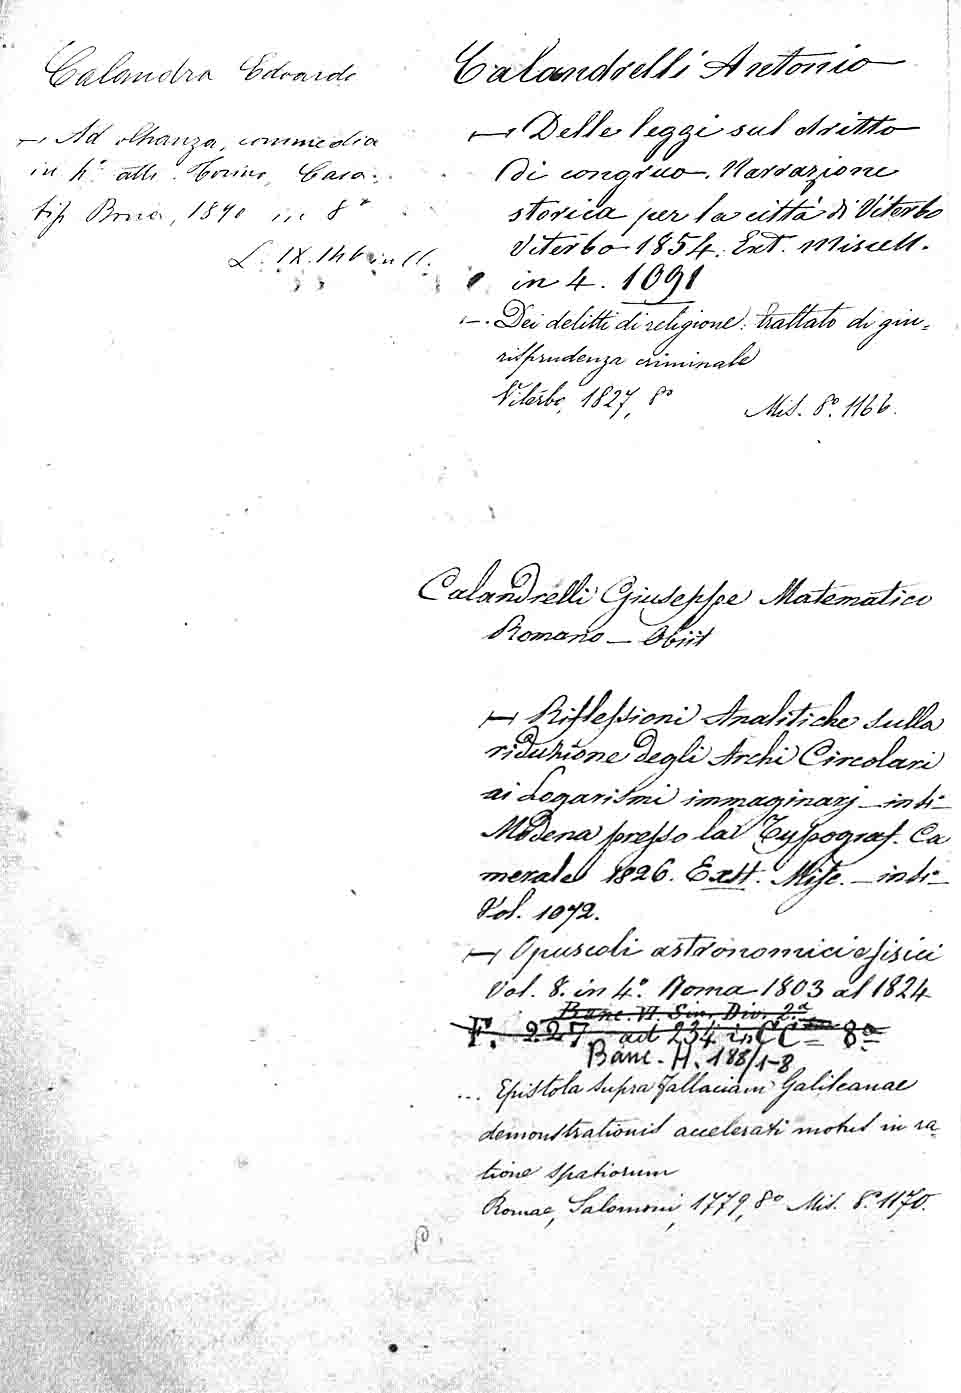 Calandra Edoardo
— Ad oltranza, commedia
in 4 atti. Torino, Casa
tip. Bona, 1890 in 8°
L. IX. 146 in
Calandrelli Antonio
— Delle leggi sul dritto
di congruo. Narrazione
storica per la città di Viterbo
Viterbo 1854. Ext. Miscell.
in 4. 1091
—. Dei delitti di religione: trattato di giu=
risprudenza criminale
Viterbo, 1827, 8°
Mis. 8°. 1166.
Calandrelli Giuseppe Matematico
Romano — Obiit
— Riflessioni Analitiche sulla
riduzione degli Archi Circolari
ai Logarismi immaginarj — in 4°—
Modena presso la Typograf. Ca
merale 1826. Extt. Misc. — in 4°—
Vol. 1072.
— Opuscoli astronomici e fisici
Vol. 8. in 4°. Roma 1803 al 1824
Banc. VI. Sin. Div. 2.a
F. 227 ad 234 in CC 8a
Banc. H. 188/1-8
... Epistola supra fallaciam Galileanae
demonstrationis accelerati motus in ra
tione spatiorum
Romae, Salomoni, 1779, 8° Mis. 8° 1170.